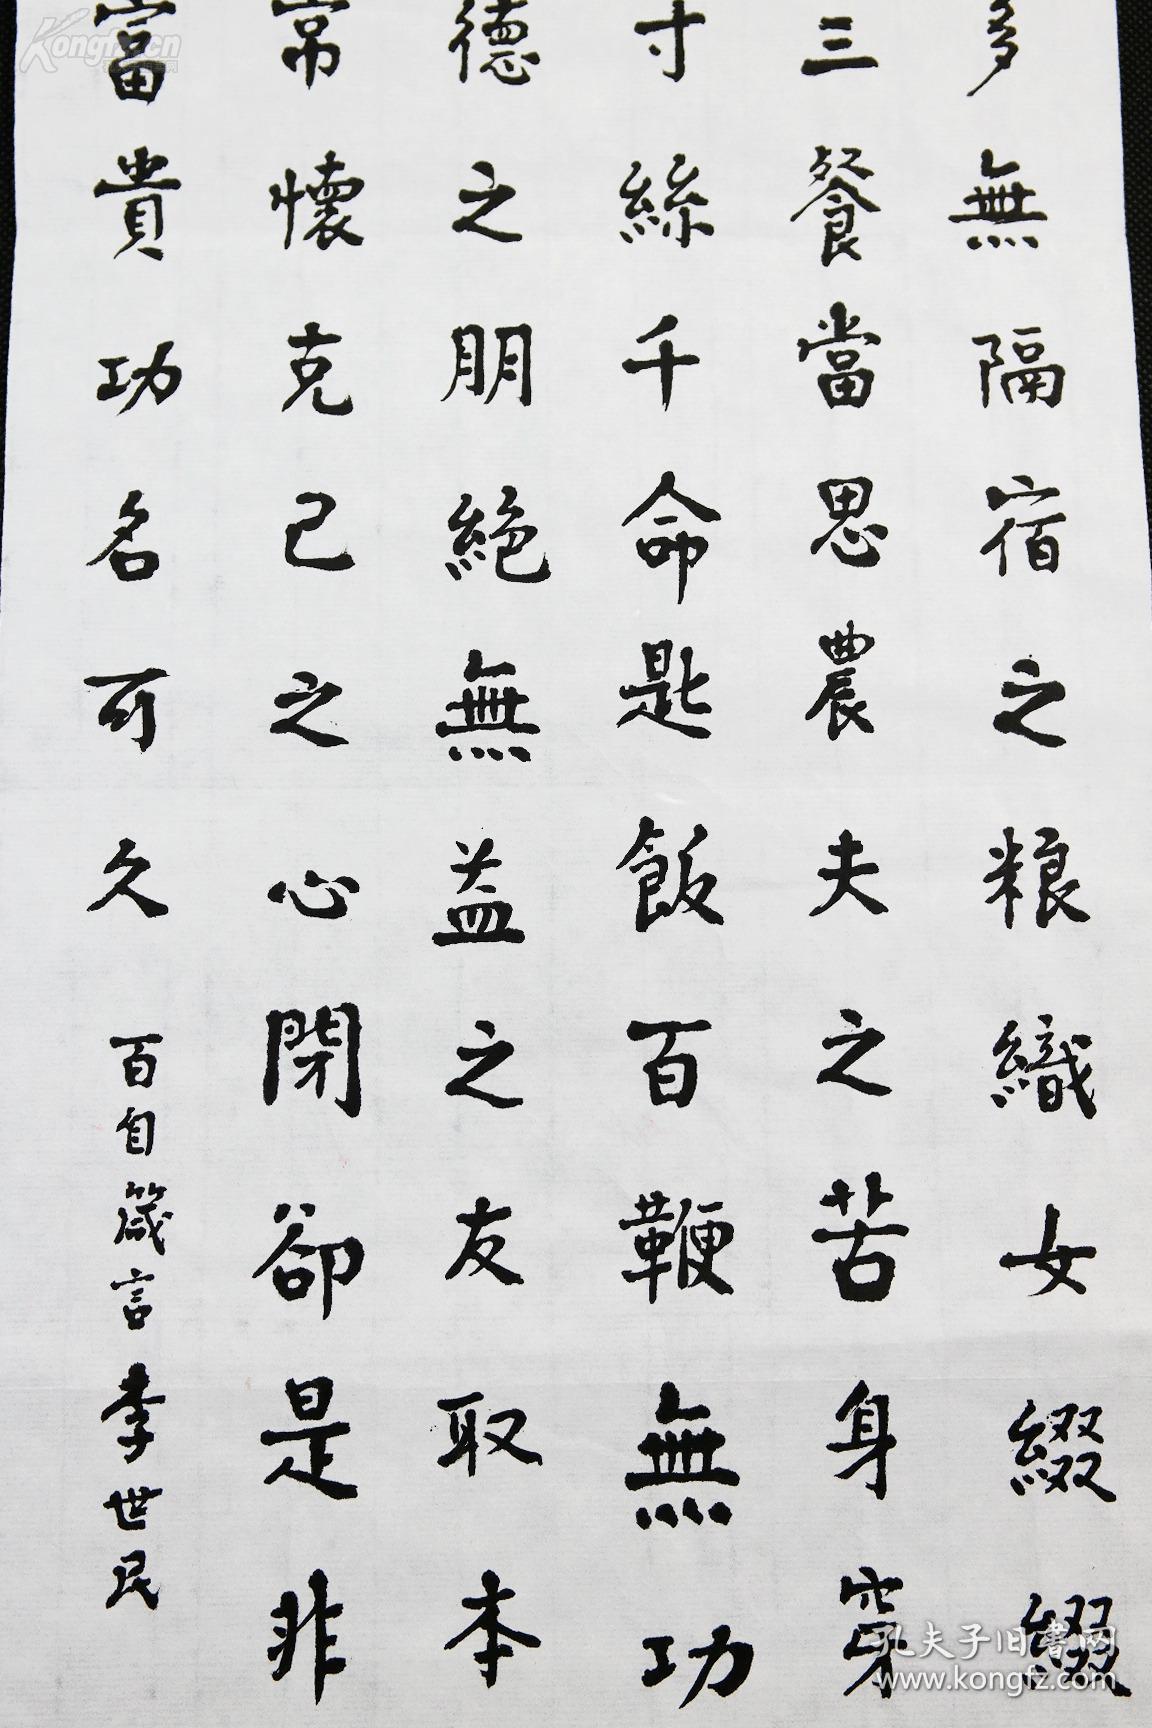 多無隔宿之粮織女綴綴
三餐當思農夫之苦身穿
寸絲千命匙飯百鞭無功
德之朋絕無益之友取本
常懷克己之心閉卻是非
富貴功名可久
百自箴言李世民
Kongfz.cn
孔夫子旧書网
www.kongfz.com